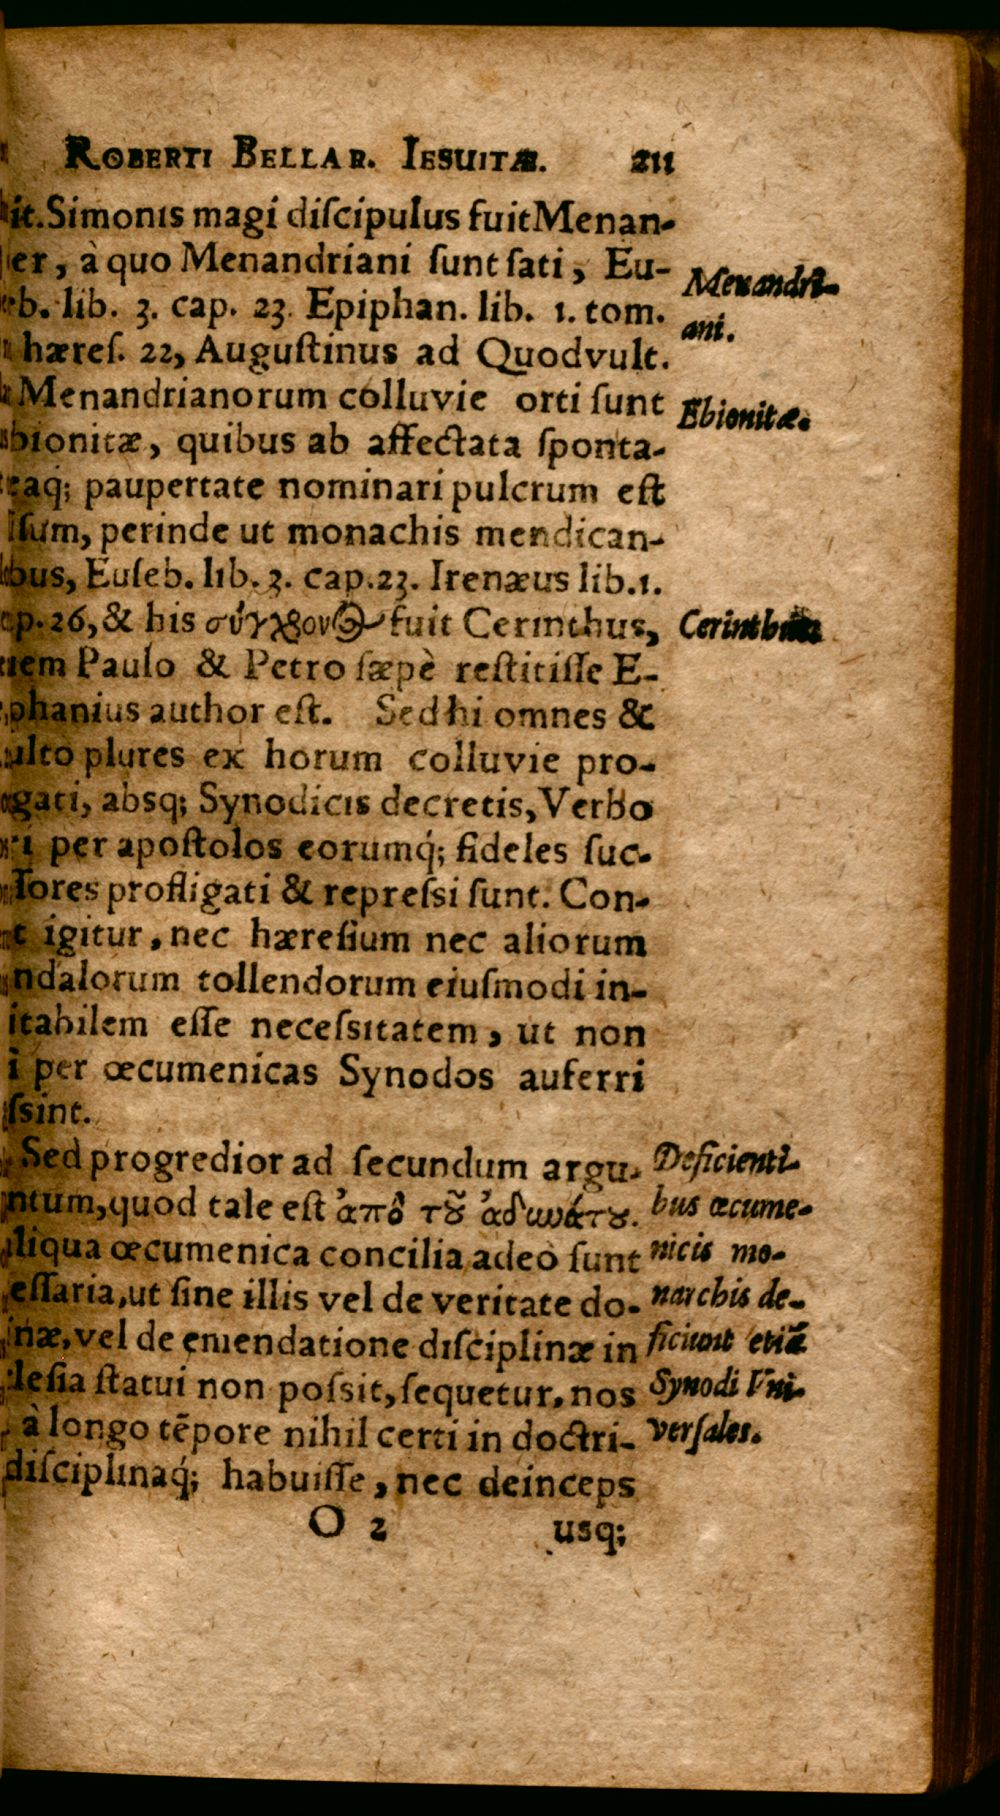 ROBERTI BELLAR. IESUITÆ. 211
it. Simonis magi diſcipulus fuit Menan-
er, à quo Menandriani ſunt ſati, Eu-
b. lib. 3. cap. 23. Epiphan. lib. 1. tom.
hæreſ. 22, Auguſtinus ad Quodvult.
Menandrianorum colluvie orti ſunt
bionitæ, quibus ab affectata ſponta-
eaq́; paupertate nominari pulcrum eſt
ſum, perinde ut monachis mendican-
bus, Euſeb. lib. 3. cap. 23. Irenæus lib. 1.
p. 26, & his σύγχρονος fuit Cerinthus,
em Paulo & Petro ſæpè reſtitiſſe E-
phanius author eſt. Sed hi omnes &
ulto plures ex horum colluvie pro-
gati, absq; Synodicis decretis, Verbo
i per apoſtolos eorumq́; fideles ſuc-
ſores profligati & repreſsi ſunt. Con-
t igitur, nec hæreſium nec aliorum
ndalorum tollendorum eiuſmodi in-
itabilem eſſe neceſsitatem, ut non
i per œcumenicas Synodos auferri
ſsint.
Sed progredior ad ſecundum argu-
ntum, quod tale eſt ἀπὸ τοῦ ἀδυνάτου.
liqua œcumenica concilia adeò ſunt
eſſaria, ut ſine illis vel de veritate do-
næ, vel de emendatione diſciplinæ in
leſia ſtatui non poſsit, ſequetur, nos
à longo tẽpore nihil certi in doctri-
diſciplinaq́; habuiſſe, nec deinceps
O 2 usq;
Menandri-
ani.
Ebionitæ.
Cerinthus
Deficienti-
bus œcume-
nicis mo-
narchis de-
ficiunt etiã
Synodi Vni-
verſales.